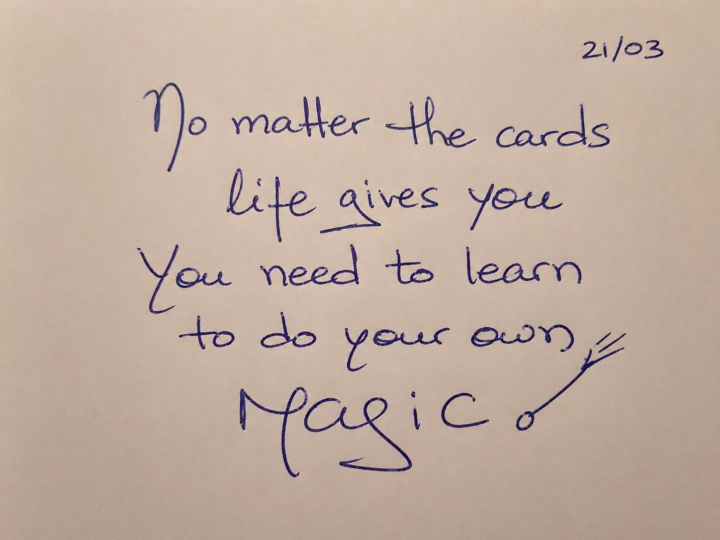 21/03
No matter the cards
life gives you
You need to learn
to do your own
Magic